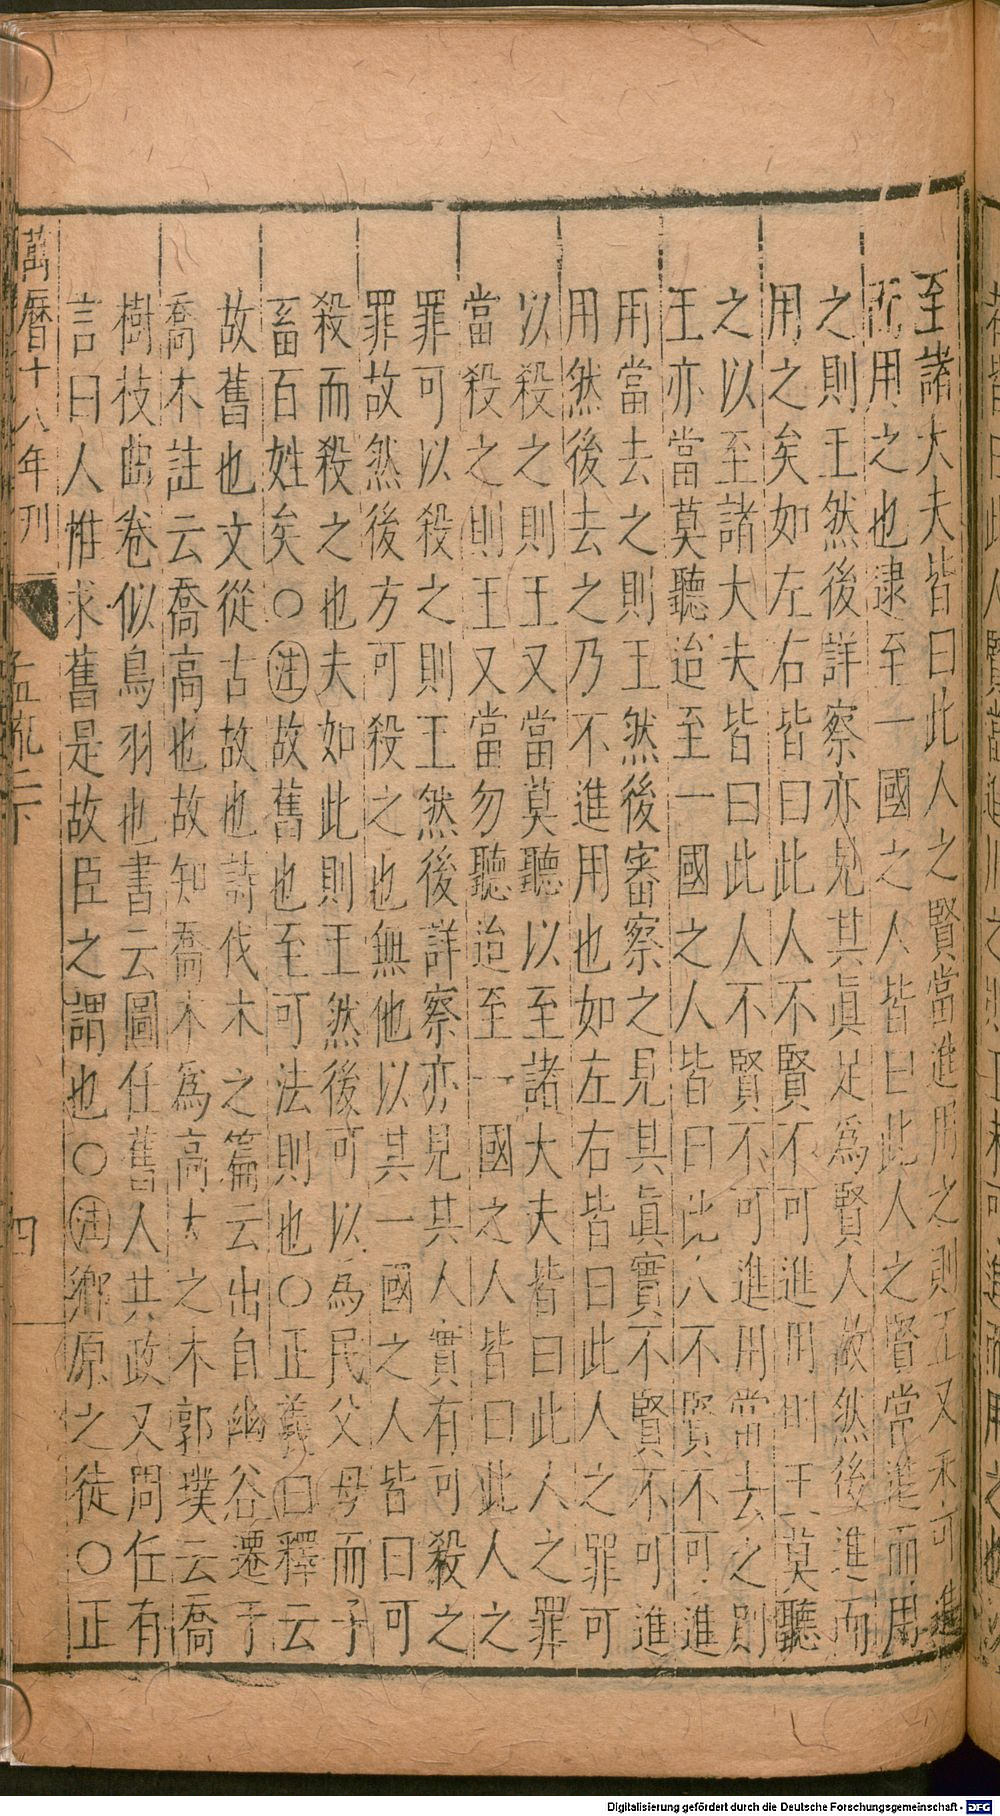 至諸大夫皆曰此人之賢當進用之則王又未可進
而用之也逮至一國之人皆曰此人之賢當進而用
之則王然後詳察亦見其眞足爲賢人故然後進而
用之矣如左右皆曰此人不賢不可進用則王莫聽
之以至諸大夫皆曰此人不賢不可進用當去之則
王亦當莫聽迨至一國之人皆曰此人不賢不可進
用當去之則王然後審察之見其眞實不賢不可進
用然後去之乃不進用也如左右皆曰此人之罪可
以殺之則王又當莫聽以至諸大夫皆曰此人之罪
當殺之則王又當勿聽迨至一國之人皆曰此人之
罪可以殺之則王然後詳察亦見其人實有可殺之
罪故然後方可殺之也無他以其一國之人皆曰可
殺而殺之也夫如此則王然後可以為民父母而子
畜百姓矣○注故舊也至可法則也○正義曰釋云
故舊也文從古故也詩伐木之篇云出自幽谷遷于
喬木註云喬高也故知喬木爲高大之木郭璞云喬
樹枝曲卷似鳥羽也書云圖任舊人共政又周任有
言曰人惟求舊是故臣之謂也○注鄉原之徒○正
萬曆十八年刊
孟疏二下
四